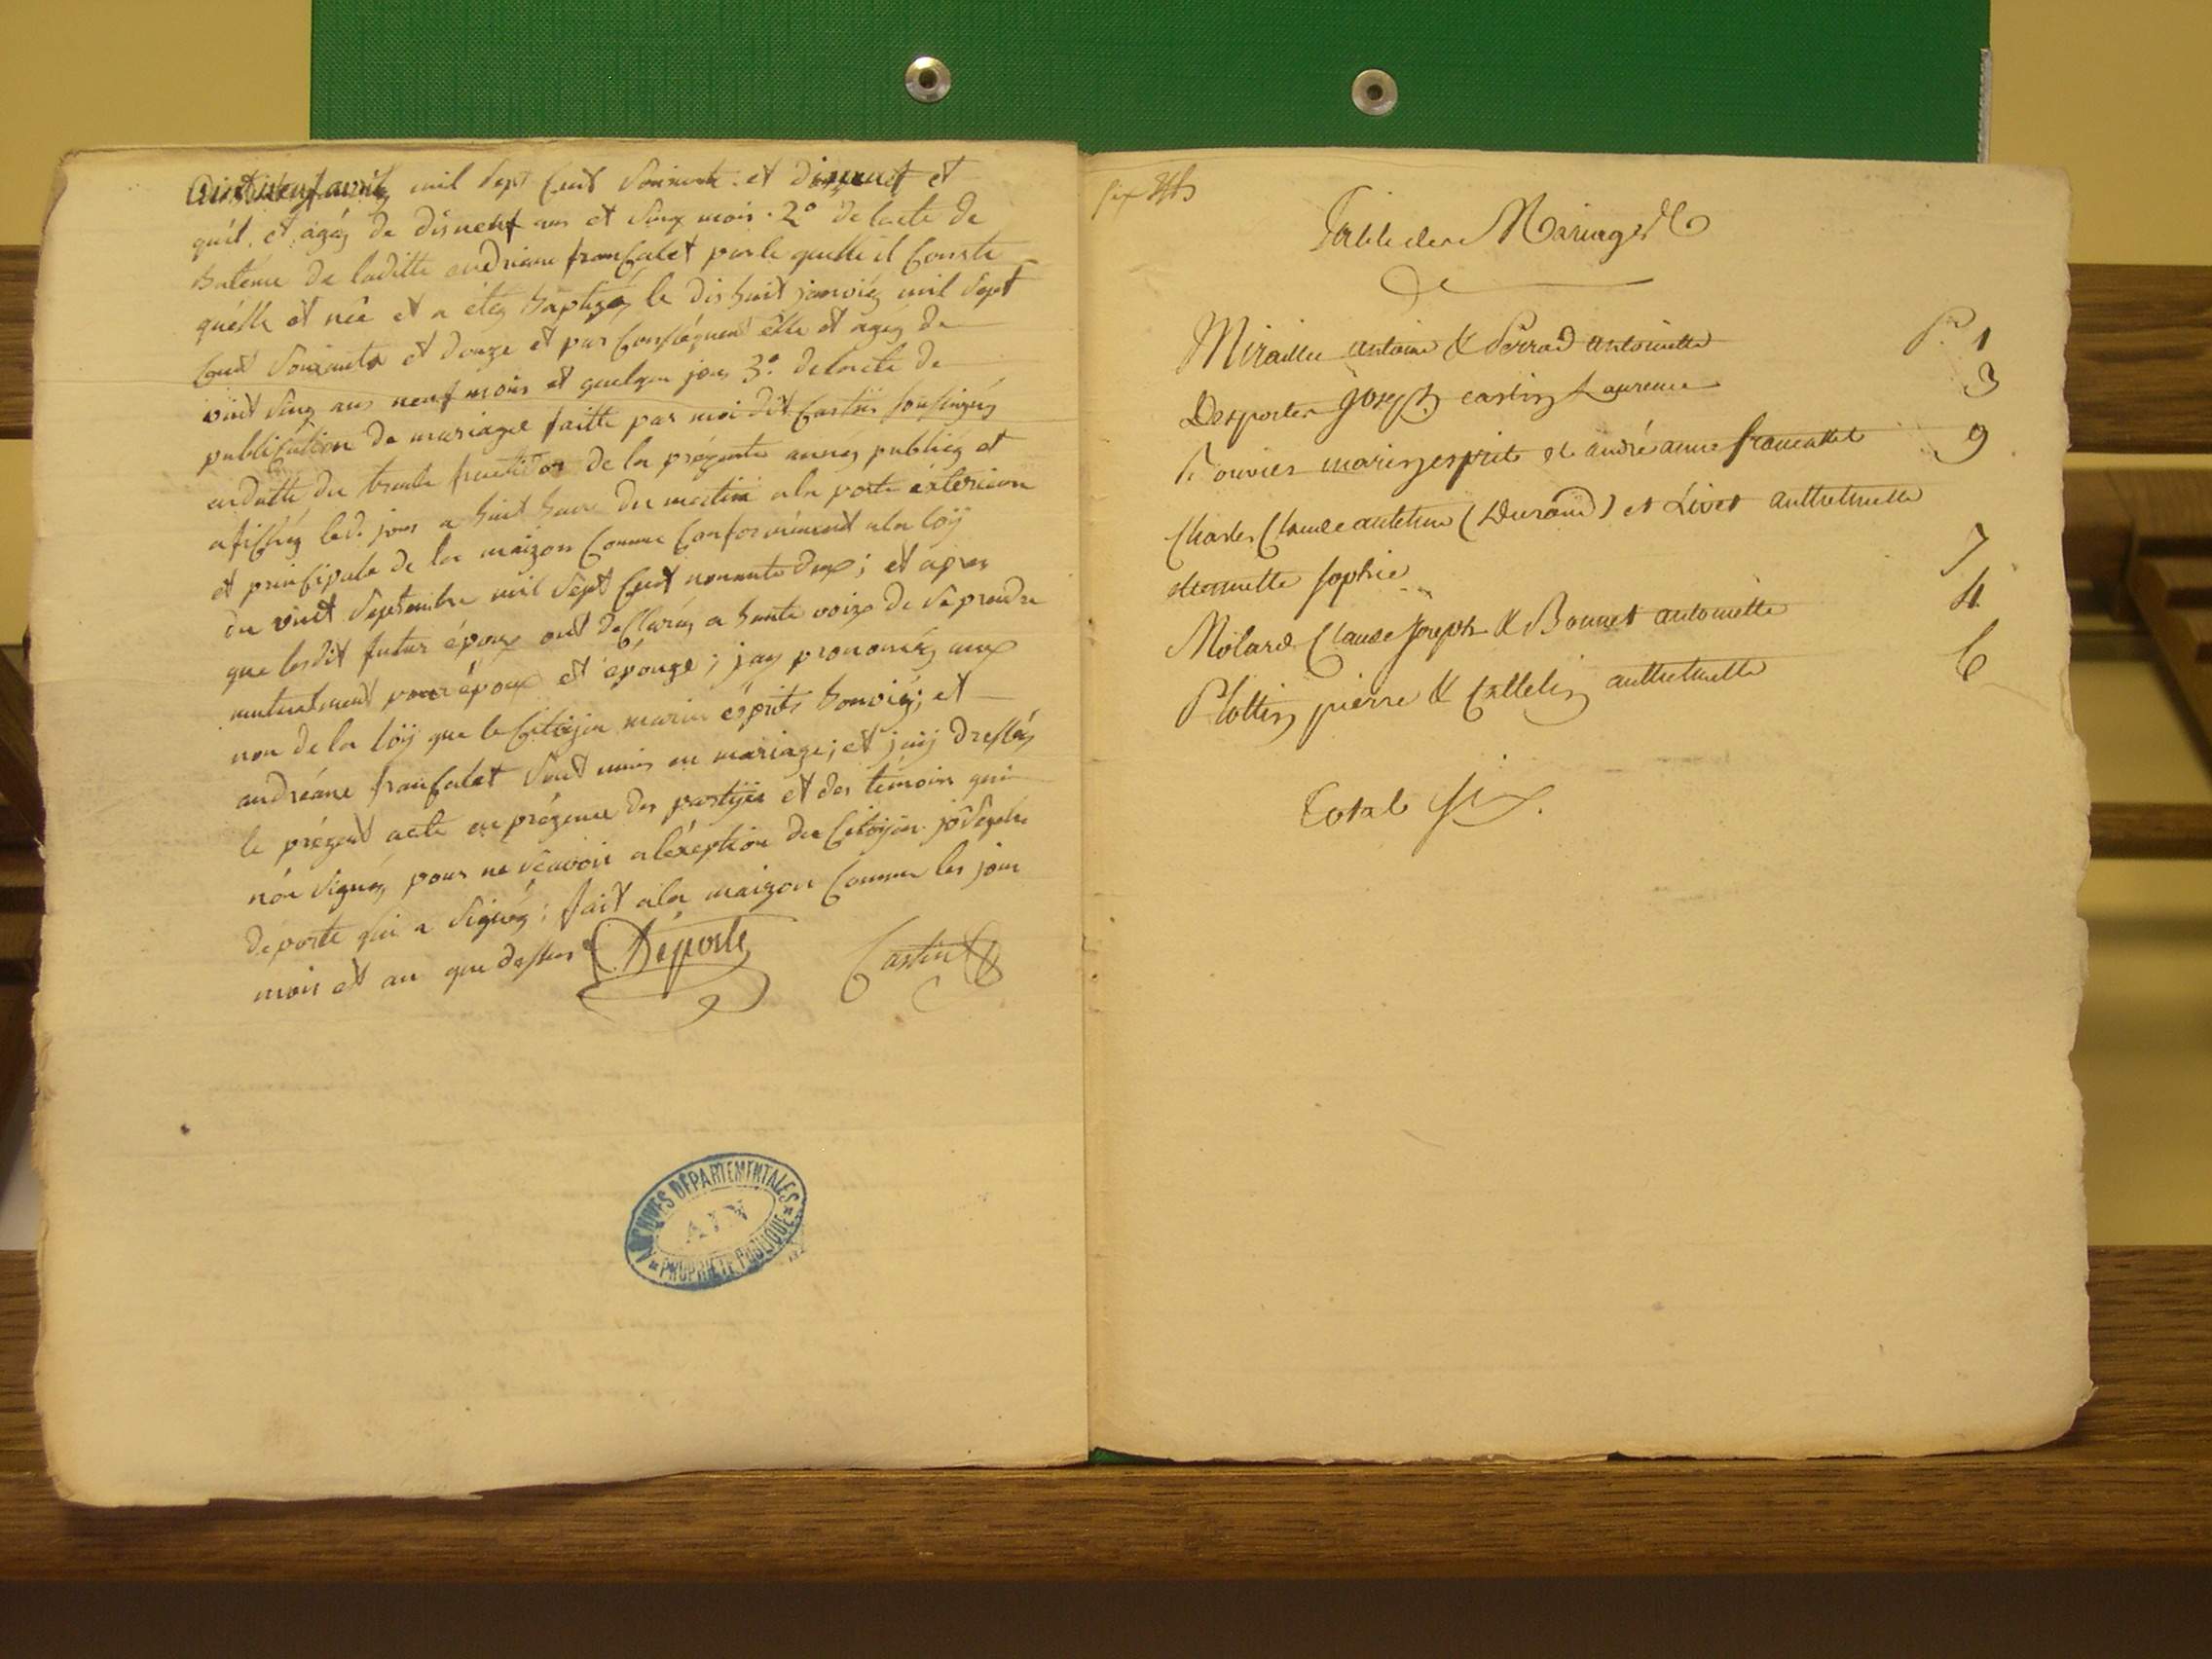 mil sept Cent Soixante et disneuf et
quil et agés de disneuf ans et sinq mois. 2º de lacte de
batême de laditte andréane franCalet par le quelle il Conste
quélle et née et a étés baptizés le dishuit janviés mil sept
Cent Soixante et douze et par Conséquent élle et agés de
vint sinq ans neuf mois et quelque jour 3º de lacte de
publiCation de mariage faitte par moi dit Castin sousignés
endatte du trente fructidor de la prézente annés publiés et
afichés led. jour a huit heure du matin ala porte éxterieure
et prinCipale de la maizon Commune Conformément ala loÿ
du vint Septembre mil Sept Cent nonante deux; et apres
que lesdit futur époux ont desClarés a haute voix de se prendre
mutuelment pour époux et épouze; jay prononcés aux
non de la loÿ que le Citoÿen marin ésprits bouviés; et
andréane franCalet sont unis en mariage; et jaÿ dressés
le prézent acte en prézence des partÿes et des témoins qui
non signés pour ne scavoir aléxeption du Citoÿen joseph
déporte qui a signés; fait ala maizon Commune les jour
mois et an que dessus Déporte Castin
ARCHIVES DÉPARTEMENTALES
AIN
PROPRIÉTÉ PUBLIQUE
six
Table des Mariages
Miraillee antoine & Perrad antoinette P. 1
Desportes Joseph castin Laurence 3
Bouvier marin esprit et andré anne francallet 9
Charles Claude antelme (Durand) et Livet anthelmette
etiennette sophie 7
Molard Claude Joseph & Bonnet antoinette 4
Plottin pierre & Cattelin anthelmette 6
Total six.